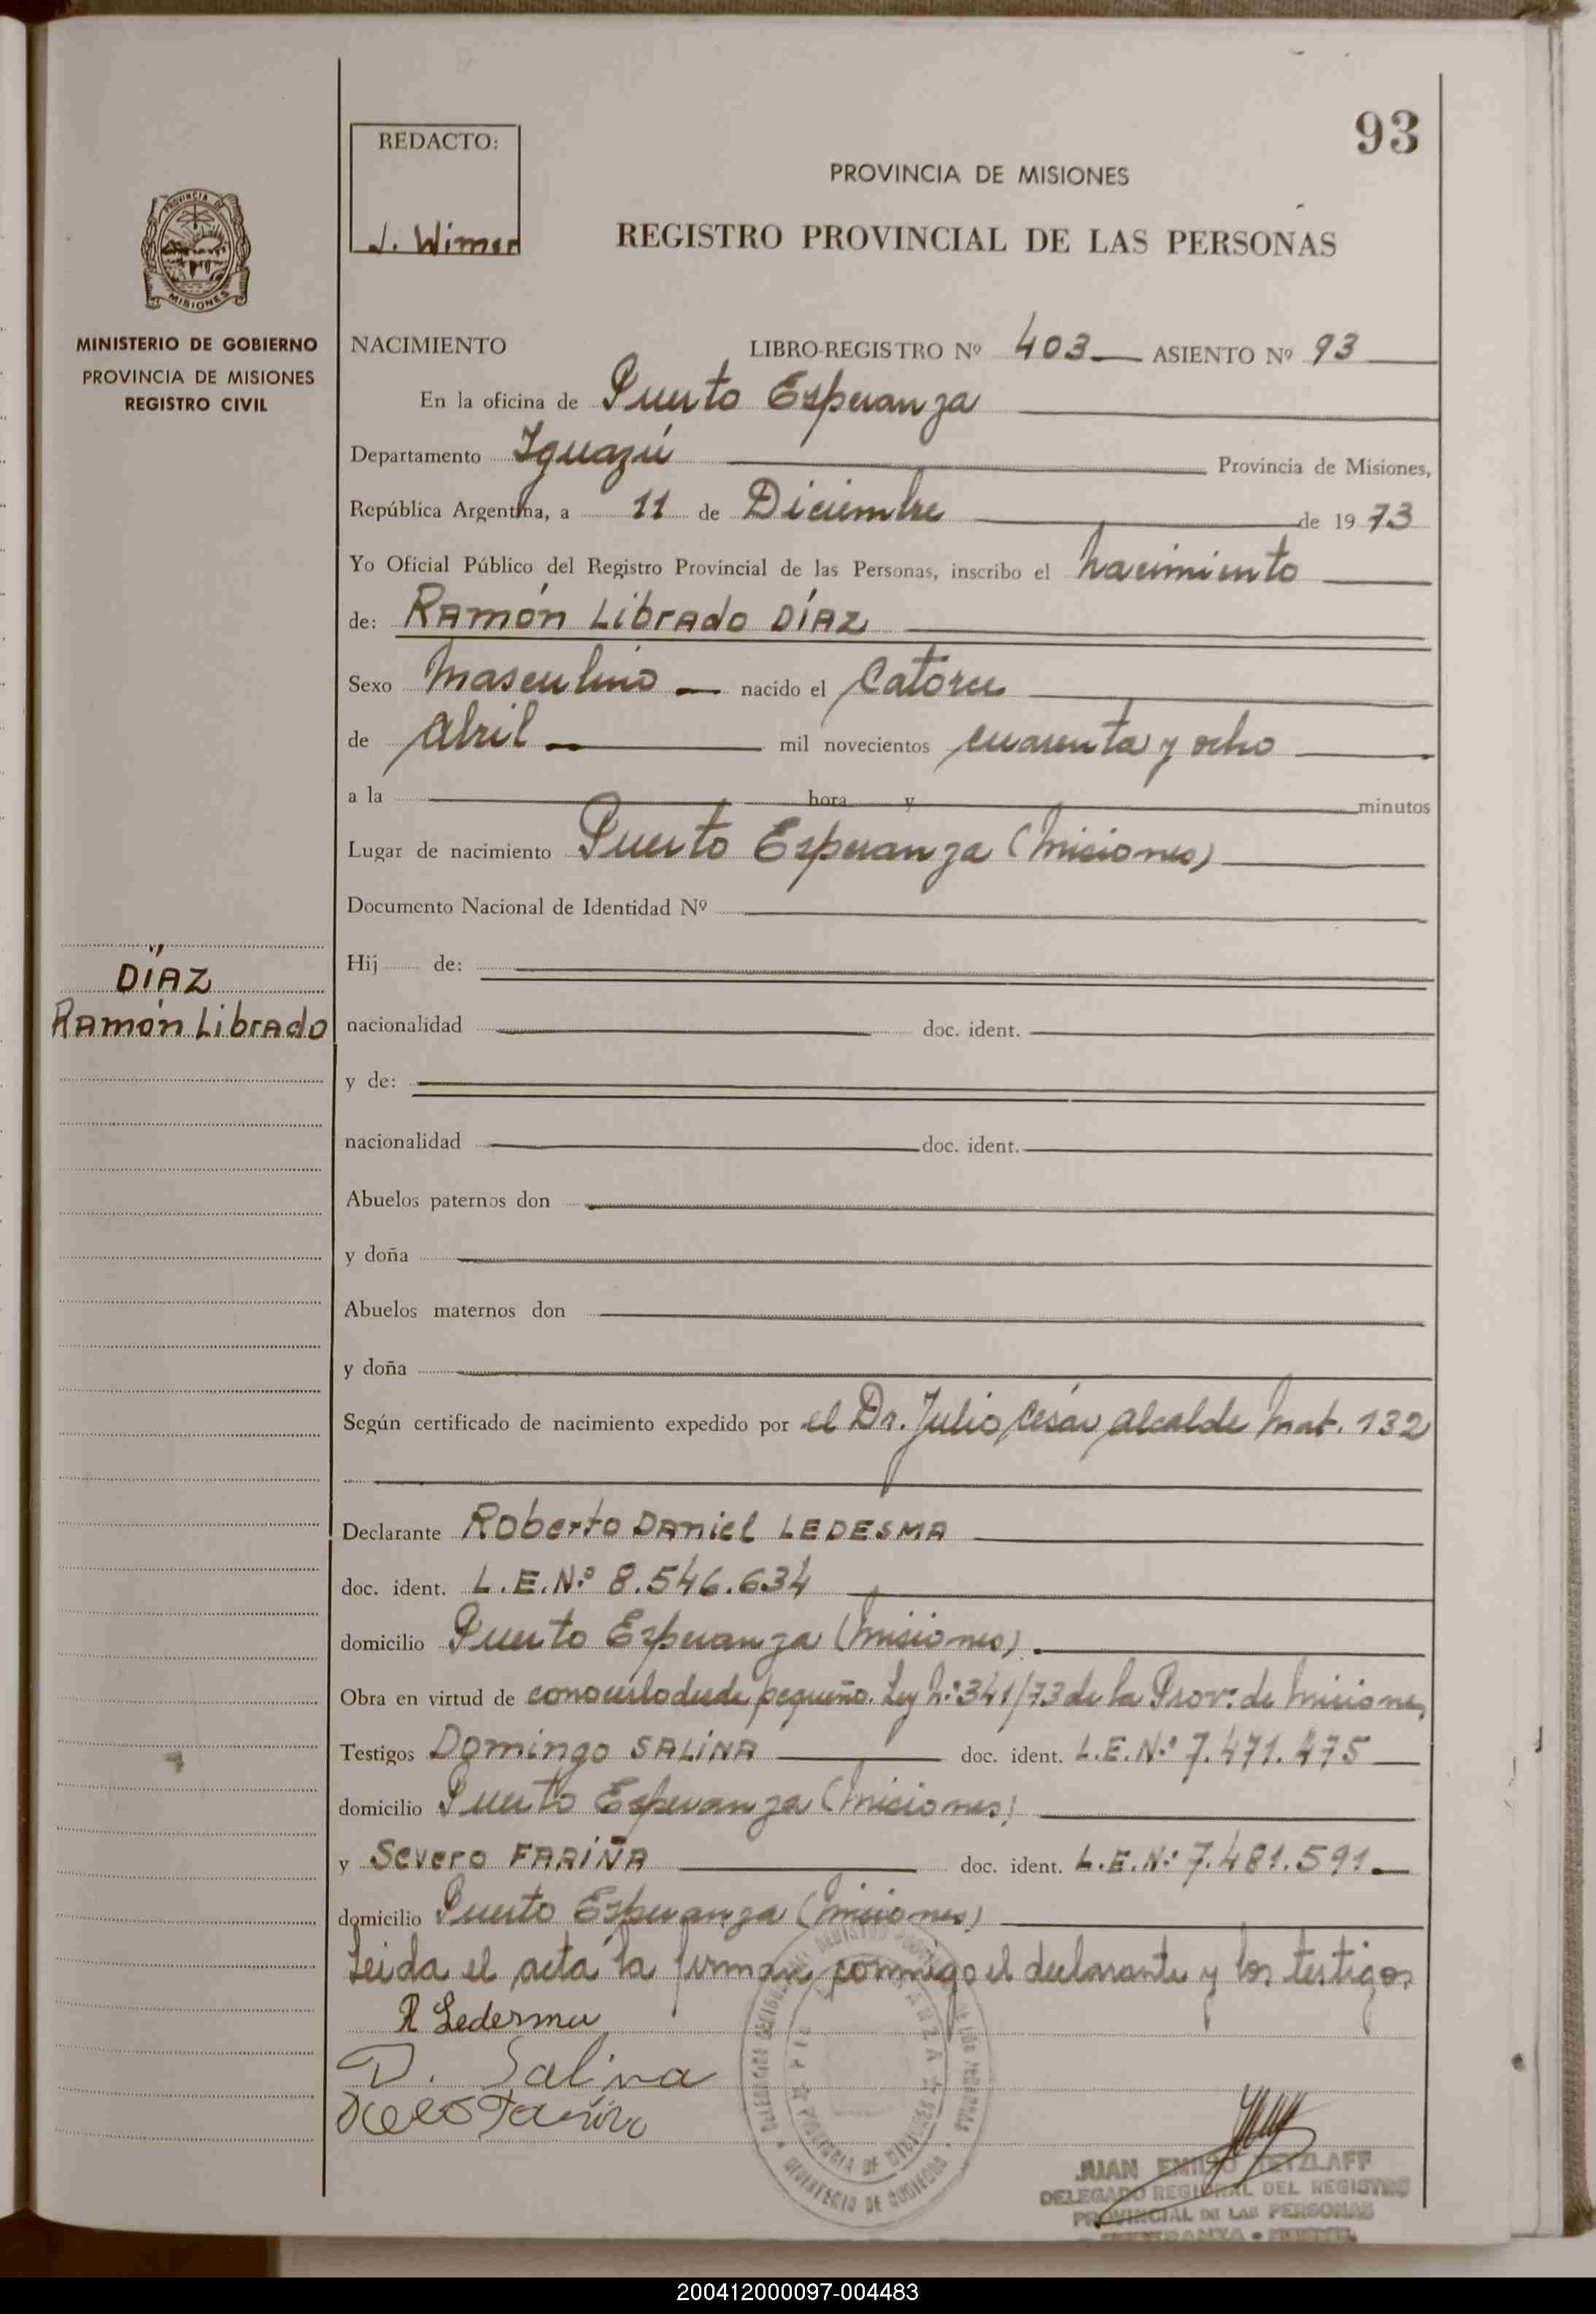 93
REDACTO:
J. Wimer
PROVINCIA DE MISIONES
REGISTRO PROVINCIAL DE LAS PERSONAS
PROVINCIA DE
MISIONES
MINISTERIO DE GOBIERNO
PROVINCIA DE MISIONES
REGISTRO CIVIL
NACIMIENTO LIBRO-REGISTRO Nº 403 ASIENTO Nº 93
En la oficina de Puerto Esperanza
Departamento Iguazú Provincia de Misiones,
República Argentina, a 11 de Diciembre de 1973
Yo Oficial Público del Registro Provincial de las Personas, inscribo el nacimiento
de: Ramón Librado DÍAZ
Sexo Masculino nacido el Catorce
de Abril mil novecientos cuarenta y ocho
a la hora y minutos
Lugar de nacimiento Puerto Esperanza (Misiones)
Documento Nacional de Identidad Nº
DÍAZ
Ramón Librado
Hij de:
nacionalidad doc. ident.
y de:
nacionalidad doc. ident.
Abuelos paternos don
y doña
Abuelos maternos don
y doña
Según certificado de nacimiento expedido por el Dr. Julio César Alcalde Mat. 132
Declarante Roberto Daniel LEDESMA
doc. ident. L.E.Nº 8.546.634
domicilio Puerto Esperanza (Misiones).
Obra en virtud de conocerlo desde pequeño. Ley Nº 341/73 de la Prov. de Misiones
Testigos Domingo SALINA doc. ident. L.E.Nº 7.471.475
domicilio Puerto Esperanza (Misiones)
y Severo FARIÑA doc. ident. L.E.Nº 7.481.591
domicilio Puerto Esperanza (Misiones)
Leida el acta la firman conmigo el declarante y los testigos
R Ledesma
D. Salina
PROVINCIA DE MISIONES
MINISTERIO DE GOBIERNO
JUAN EMILIO TETZLAFF
DELEGADO REGIONAL DEL REGISTRO
PROVINCIAL DE LAS PERSONAS
200412000097-004483